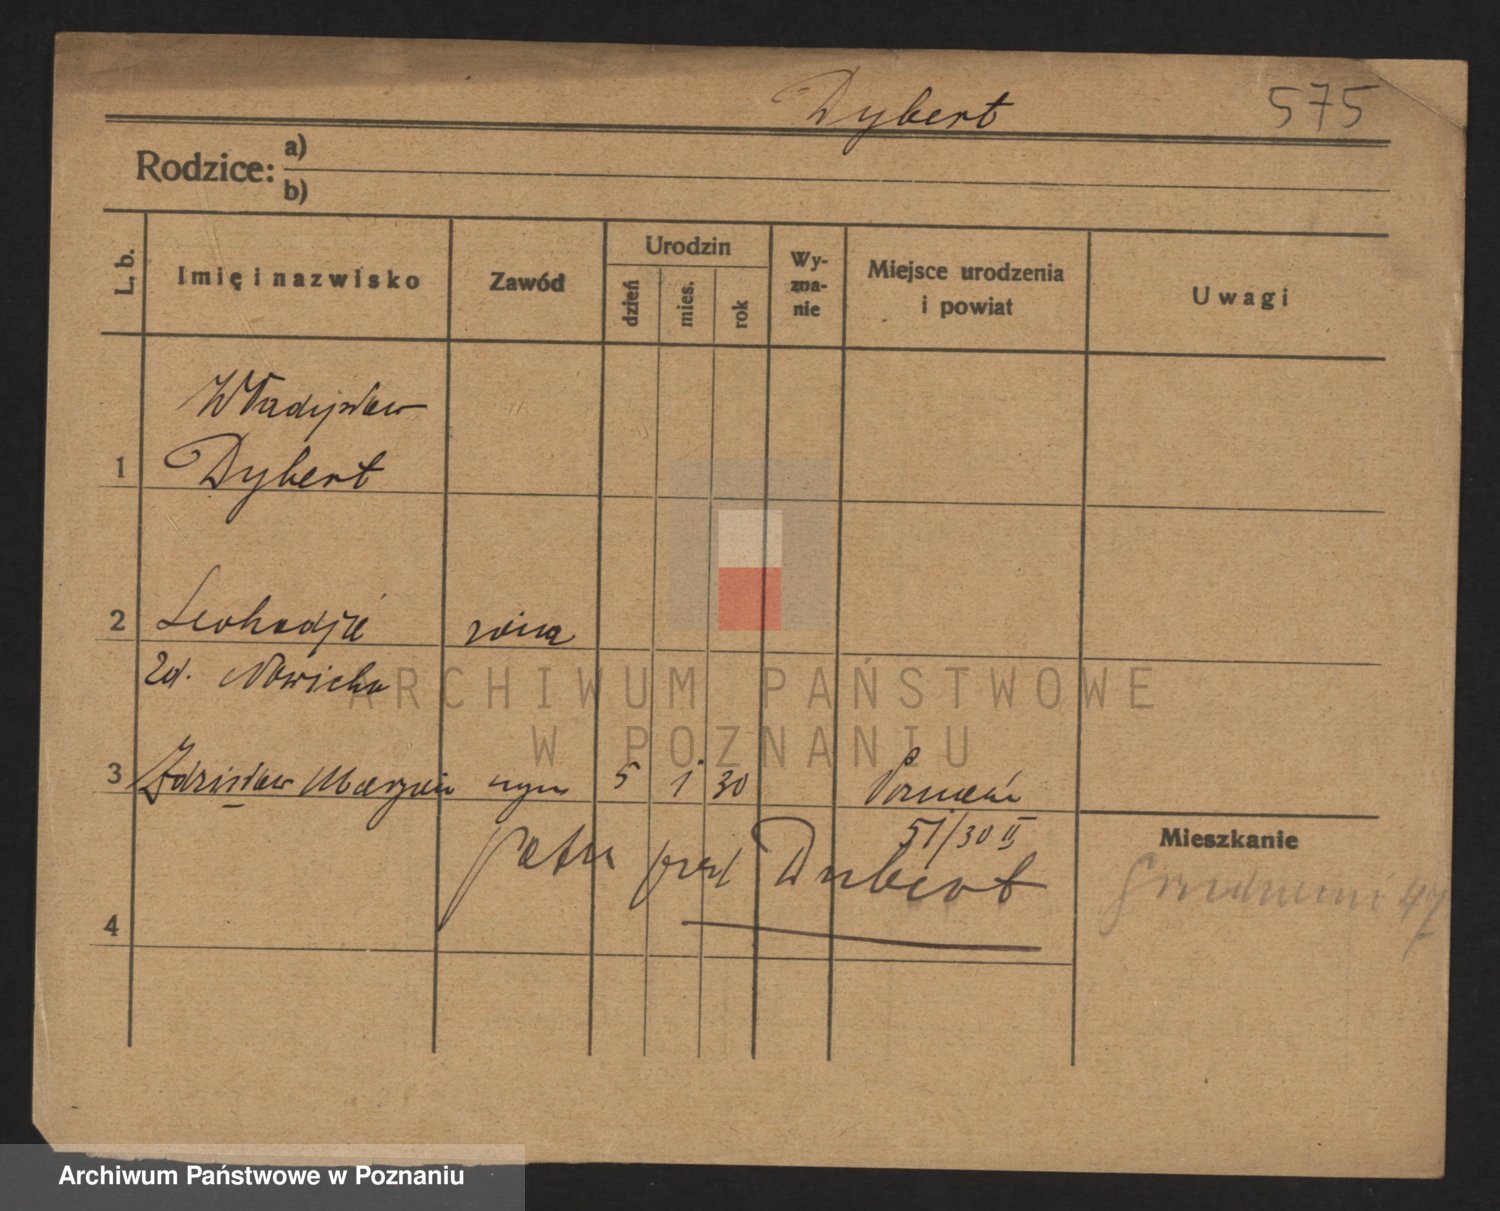 Dybert 575
Rodzice: a)
b)
L. b. Imię i nazwisko Zawód Urodzin dzień mies. rok Wy-zna-nie Miejsce urodzenia i powiat Uwagi
Władysław
1 Dybert
2 Leokadja żona
zd. Nowicka
3 Zdzisław Marjan syn 5 1 30 Poznań
51/30 II
Patrz pod Dubert
Mieszkanie
47
4
ARCHIWUM PAŃSTWOWE
W POZNANIU
Archiwum Państwowe w Poznaniu